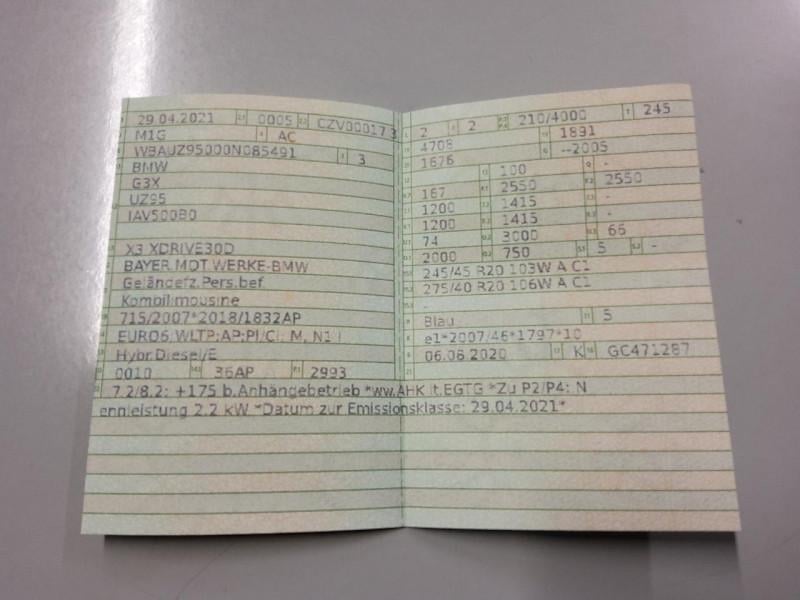 29.04.2021 0005 CZV00017 3
M1G AC
WBAUZ95000N085491 3
BMW
G3X
UZ95
IAV500B0
X3 XDRIVE30D
BAYER.MOT.WERKE-BMW
Geländefz.Pers.bef
Kombilimousine
715/2007*2018/1832AP
EURO6;WLTP;AP;PI/CI; M, N1 I
Hybr.Diesel/E
0010 36AP 2993
7.2/8.2: +175 b.Anhängebetrieb *ww.AHK lt.EGTG *Zu P2/P4: N
ennleistung 2.2 kW *Datum zur Emissionsklasse: 29.04.2021*
2 2 210/4000 245
4708 1891
1676 --2005
100 -
167 2550 2550
1200 1415 -
1200 1415 -
74 3000 66
2000 750 5 -
245/45 R20 103W A C1
275/40 R20 106W A C1
-
Blau 5
e1*2007/46*1797*10
06.08.2020 K GC471287